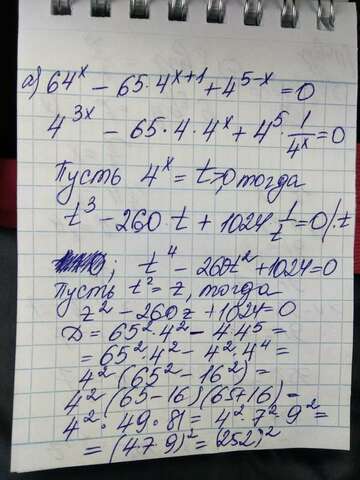 а) 64^x − 65·4^(x+1) + 4^(5−x) = 0
4^(3x) − 65·4·4^x + 4^5·1/4^x = 0
Пусть 4^x = t>0, тогда
t^3 − 260·t + 1024 1/t = 0 |·t
; t^4 − 260t^2 + 1024 = 0
Пусть t^2 = z, тогда
z^2 − 260z + 1024 = 0
D = 65^2·4^2 − 4·4^5 =
= 65^2·4^2 − 4^2·4^4 =
4^2(65^2 − 16^2) =
4^2(65−16)(65+16) =
4^2·49·81 = 4^2·7^2·9^2 =
= (4·7·9)^2 = 252)^2